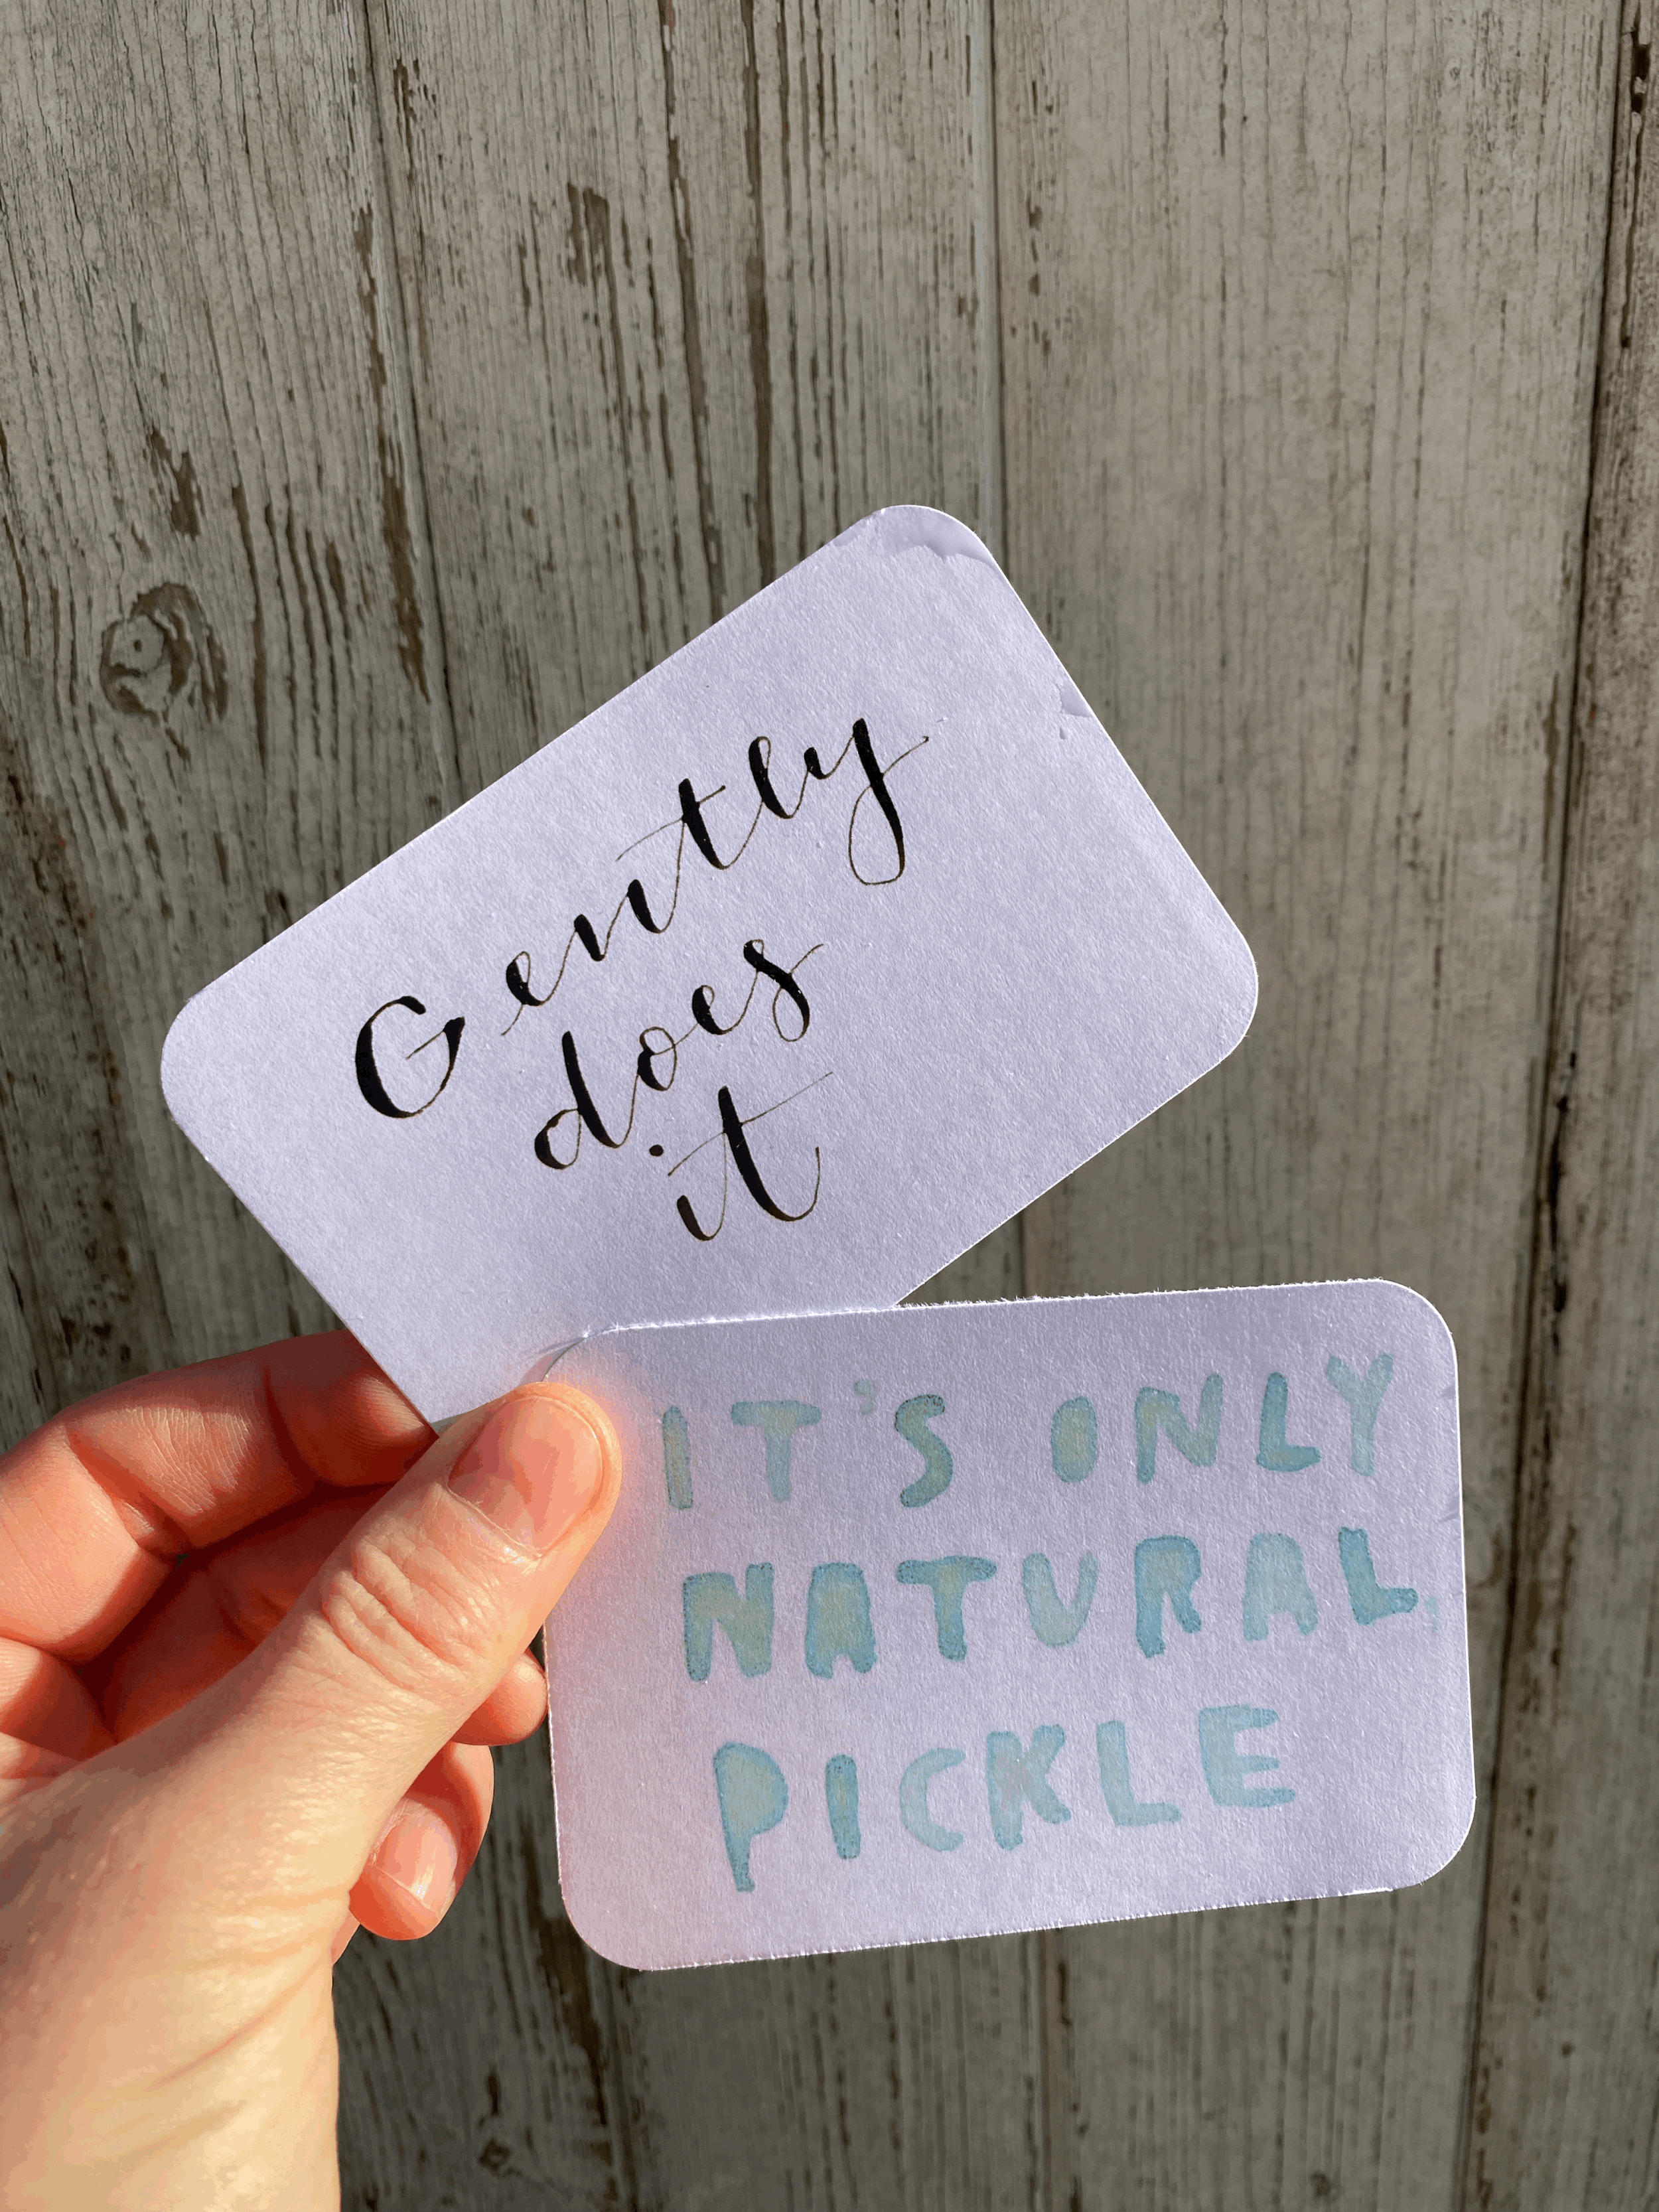 Gently
does
it
IT'S ONLY
NATURAL,
PICKLE